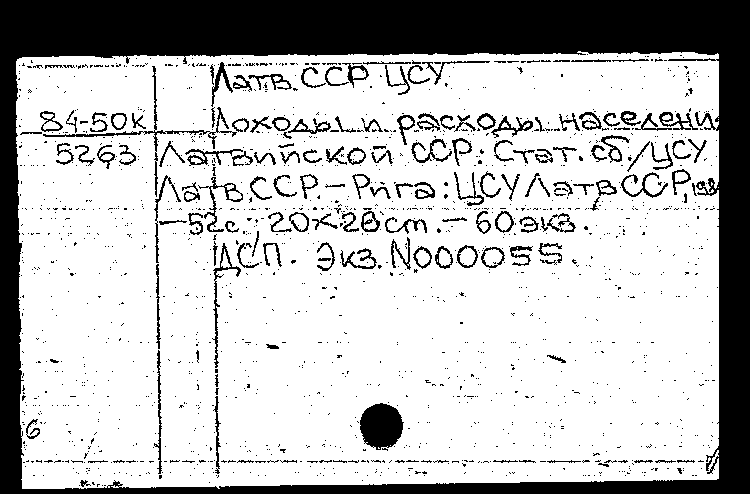 Латв. ССР. ЦСУ.
84-50к Доходы и расходы населени
5263 Латвийской ССР: Стат. сб/ЦСУ
Латв. ССР. - Рига: ЦСУ Латв ССР,
-52с.; 20×28 cm. - 60 экз.
ДСП. Экз. N000055.
6